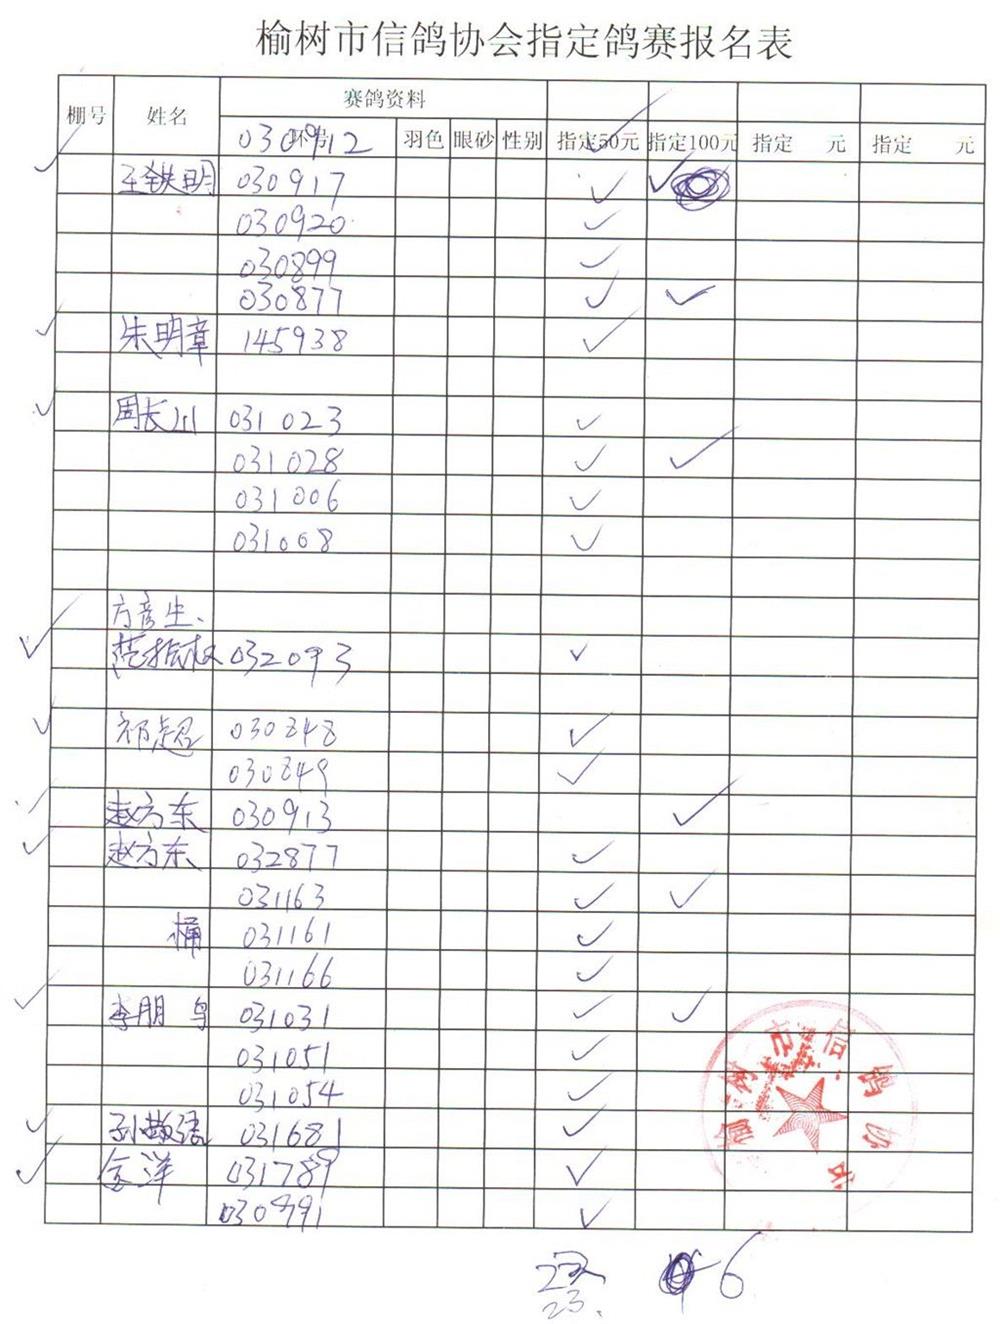 榆树市信鸽协会指定鸽赛报名表
棚号 姓名 赛鸽资料
环号 羽色 眼砂 性别 指定50元 指定100元 指定 元 指定 元
030912 ✓
✓ 王铁明 030917 ✓ ✓
030920 ✓
030899 ✓
030877 ✓ ✓
✓ 朱明章 145938 ✓
✓ 周长川 031023 ✓
031028 ✓ ✓
031006 ✓
031008 ✓
方彦生、
✓ 范振权 032093 ✓
✓ 祁超 030848 ✓
030849 ✓
✓ 赵方东 030913 ✓
✓ 赵方东 032877 ✓
031163 ✓ ✓
桶 031161 ✓
031166 ✓
✓ 李朋鸟 031031 ✓ ✓
031051 ✓
031054 ✓
✓ 孙敬 031681 ✓
✓ 金洋 031789 ✓
030991 ✓
榆树市信鸽协会
6
23.